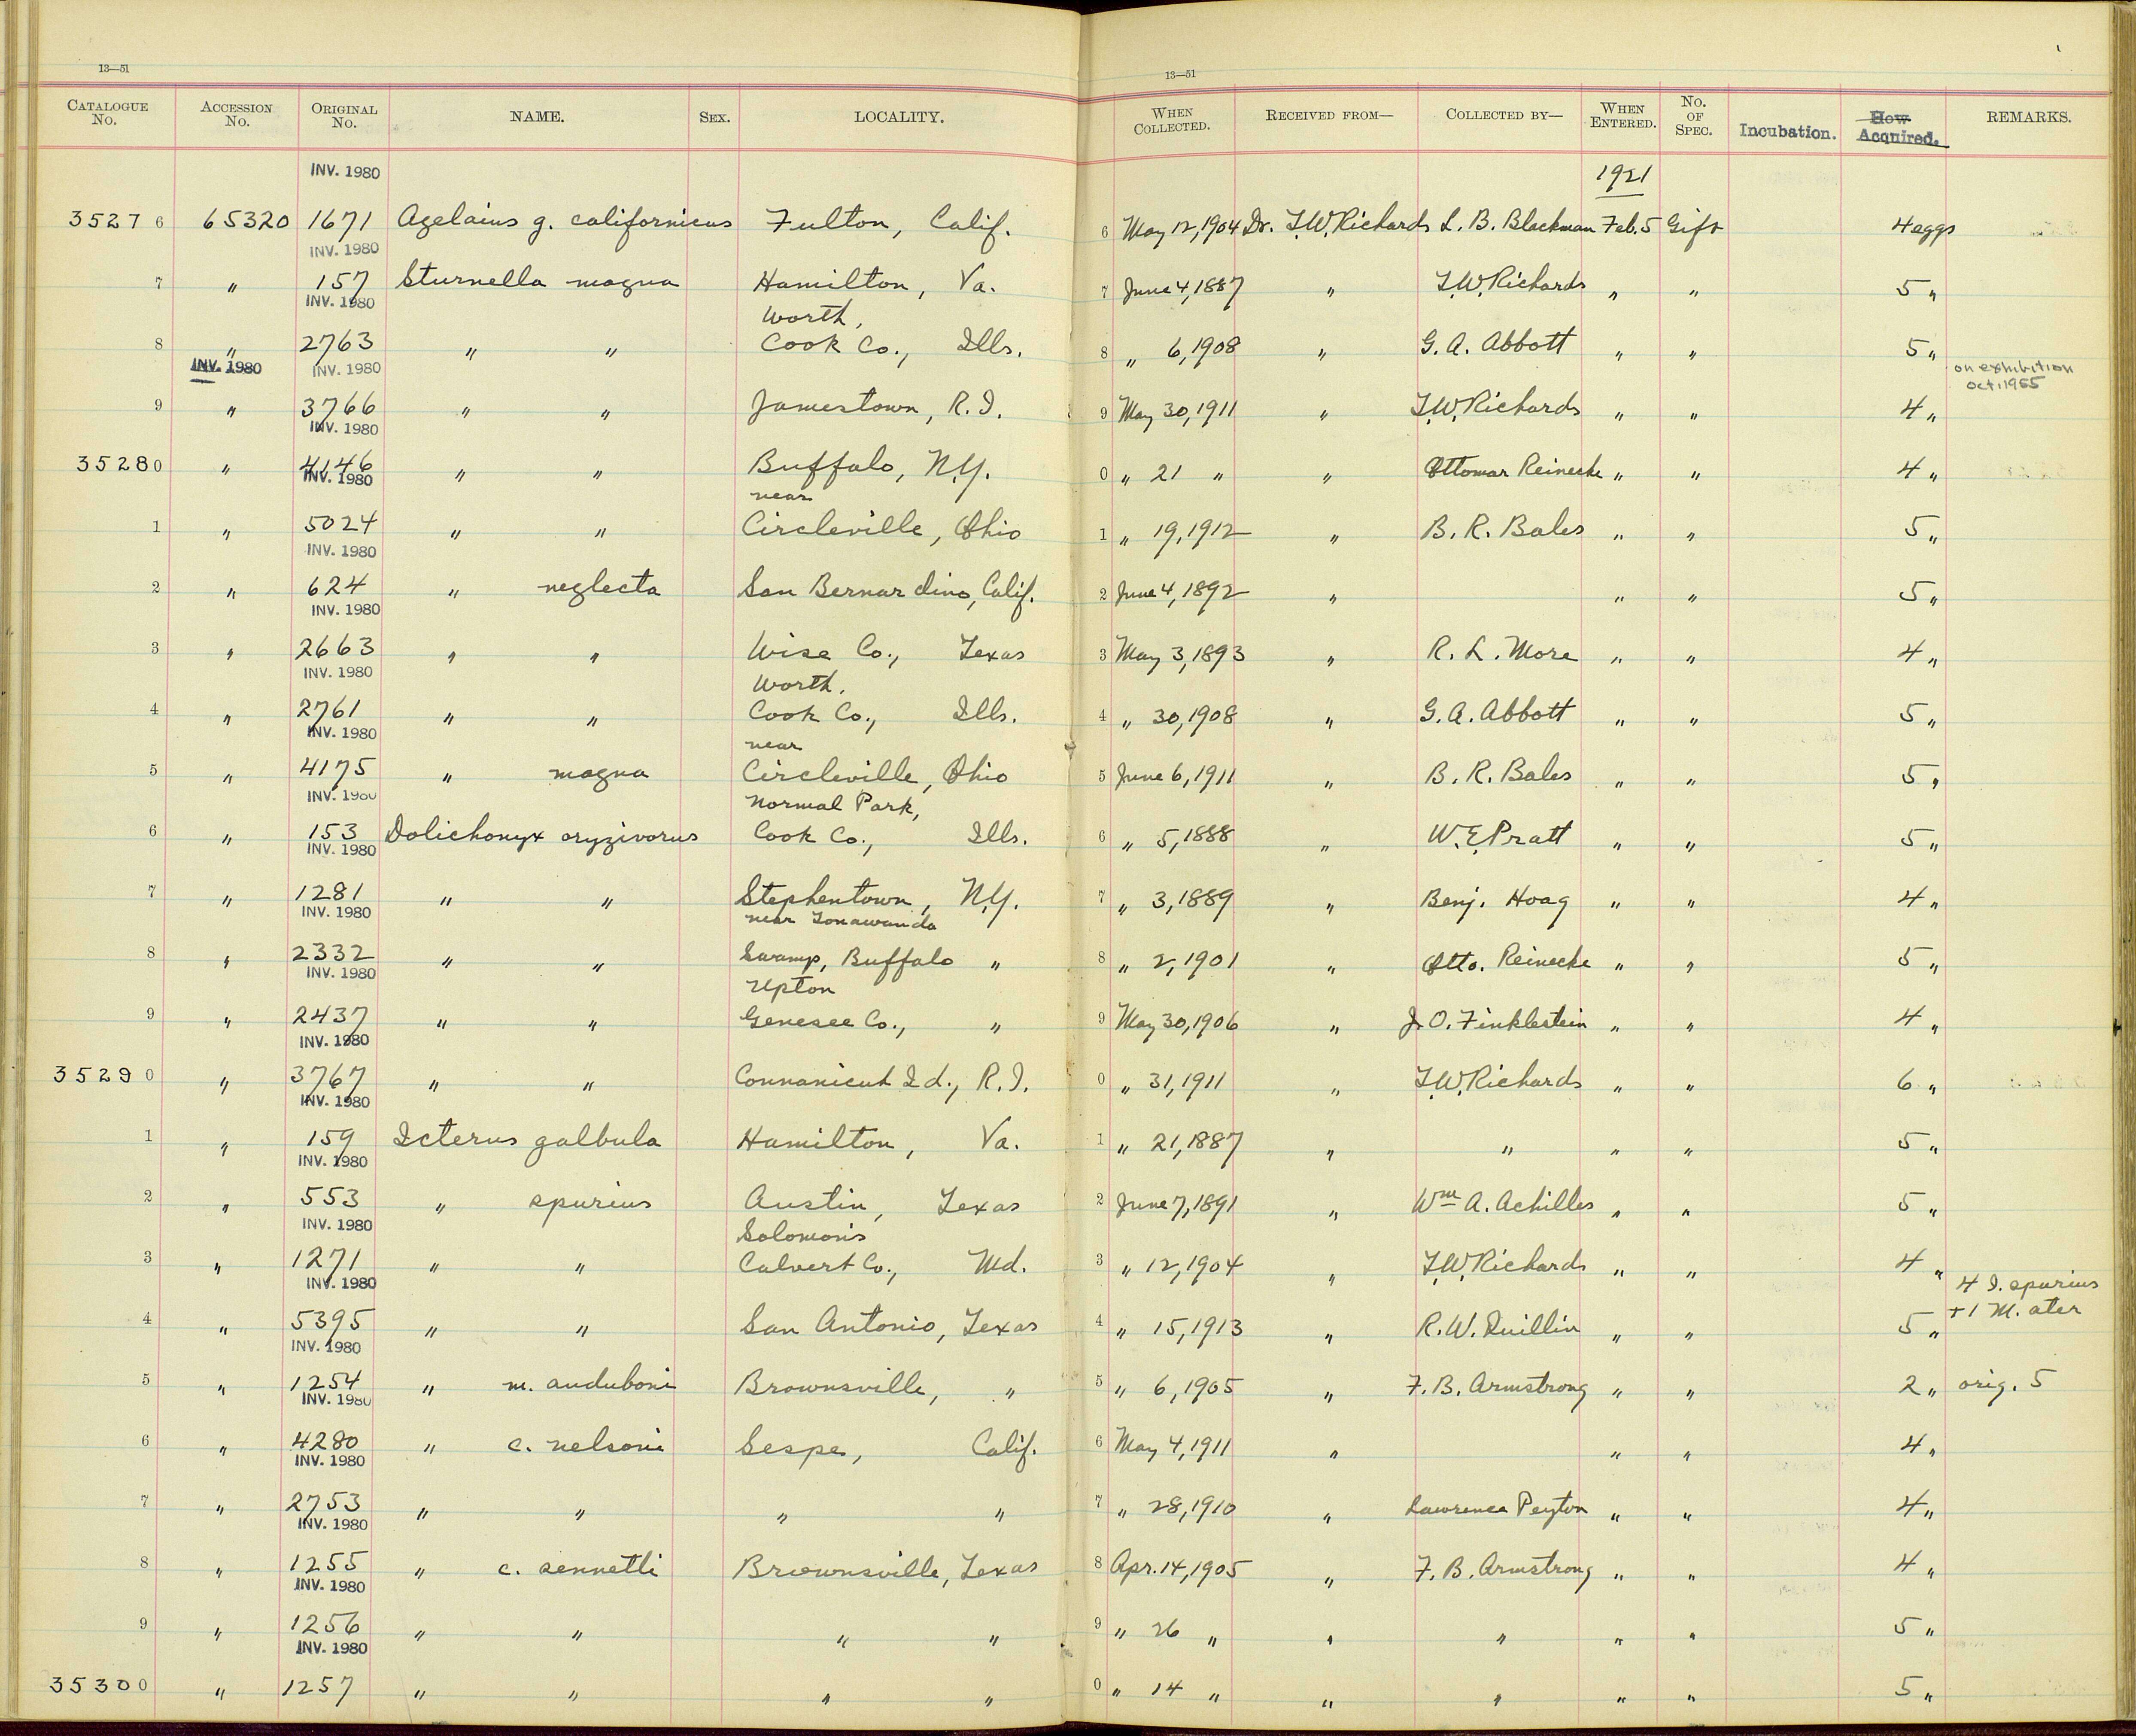 13—51 13—51
CATALOGUE No. ACCESSION No. ORIGINAL No. NAME. SEX. LOCALITY. WHEN COLLECTED. RECEIVED FROM— COLLECTED BY— WHEN ENTERED. No. OF SPEC. Incubation. How Acquired. REMARKS.
INV. 1980 1921
35276 65320 1671 Agelaius g. californicus Fulton, Calif. 6 May 12, 1904 Dr. T.W. Richards L. B. Blackman Feb. 5 Gift 4 eggs
INV. 1980
7 " 157 Sturnella magna Hamilton, Va. 7 June 4, 1887 " T.W. Richards " " 5 "
INV. 1980 Worth,
8 " 2763 " " Cook Co., Ills. 8 " 6, 1908 " G. A. Abbott " " 5 "
INV. 1980 INV. 1980 on exhibition
oct. 1955
9 " 3766 " " Jamestown, R.I. 9 May 30, 1911 " T.W. Richards " " 4 "
INV. 1980
35280 " 4146 " " Buffalo, N.Y. 0 " 21 " " Ottomar Reinecke " " 4 "
INV. 1980 near
1 " 5024 " " Circleville, Ohio 1 " 19, 1912 " B. R. Bales " " 5 "
INV. 1980
2 " 624 " neglecta San Bernardino, Calif. 2 June 4, 1892 " " " 5 "
INV. 1980
3 " 2663 " " Wise Co., Texas 3 May 3, 1893 " R. L. More " " 4 "
INV. 1980 Worth,
4 " 2761 " " Cook Co., Ills. 4 " 30, 1908 " G. A. Abbott " " 5 "
INV. 1980 near
5 " 4175 " magna Circleville, Ohio 5 June 6, 1911 " B. R. Bales " " 5 "
INV. 1980 Normal Park,
6 " 153 Dolichonyx oryzivorus Cook Co., Ills. 6 " 5, 1888 " W. E. Pratt " " 5 "
INV. 1980
7 " 1281 " " Stephentown, N.Y. 7 " 3, 1889 " Benj. Hoag " " 4 "
INV. 1980 near Tonawanda
8 " 2332 " " Swamp, Buffalo " 8 " 2, 1901 " Otto. Reinecke " " 5 "
INV. 1980 Upton
9 " 2437 " " Genesee Co., " 9 May 30, 1906 " J. O. Finklestein " " 4 "
INV. 1980
35290 " 3767 " " Connanicut Id., R.I. 0 " 31, 1911 " T.W. Richards " " 6 "
INV. 1980
1 " 159 Icterus galbula Hamilton, Va. 1 " 21, 1887 " " " " 5 "
INV. 1980
2 " 553 " spurius Austin, Texas 2 June 7, 1891 " Wm A. Achilles " " 5 "
INV. 1980 Solomon's
3 " 1271 " " Calvert Co., Md. 3 " 12, 1904 " T.W. Richards " " 4 "
INV. 1980 4 I. spurius
+ 1 M. ater
4 " 5395 " " San Antonio, Texas 4 " 15, 1913 " R. W. Quillin " " 5 "
INV. 1980
5 " 1254 " m. auduboni Brownsville, " 5 " 6, 1905 " F. B. Armstrong " " 2 " orig. 5
INV. 1980
6 " 4280 " c. nelsoni Sespe, Calif. 6 May 4, 1911 " " " 4 "
INV. 1980
7 " 2753 " " " " 7 " 28, 1910 " Lawrence Peyton " " 4 "
INV. 1980
8 " 1255 " c. sennetti Brownsville, Texas 8 Apr. 14, 1905 " F. B. Armstrong " " 4 "
INV. 1980
9 " 1256 " " " " 9 " 26 " " " " " 5 "
INV. 1980
35300 " 1257 " " " " 0 " 14 " " " " " 5 "